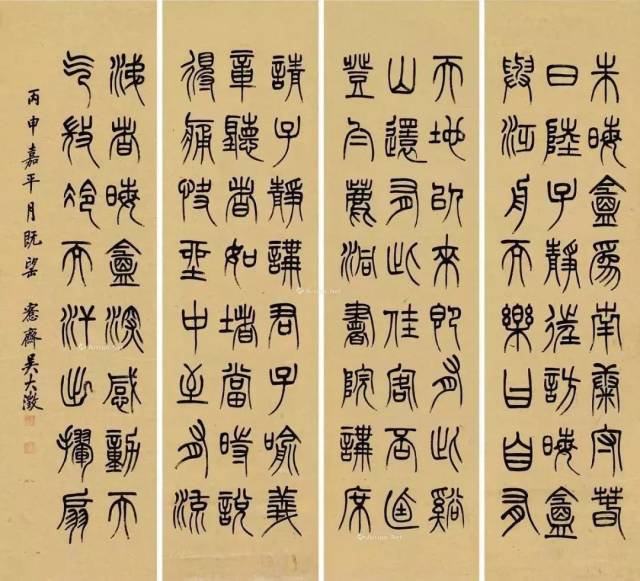 朱晦盦為南康守春
日陸子靜往訪晦盦
與泛舟而樂曰自有
天地以來即有此谿
山還有此佳客否迺
登白鹿洞書院講席
請子靜講君子喻義
章聽者如堵當時說
得痛快坐中至有流
涕者晦盦深感動天
气微冷而汗出揮扇
丙申嘉平月既望 愙齋吳大澂